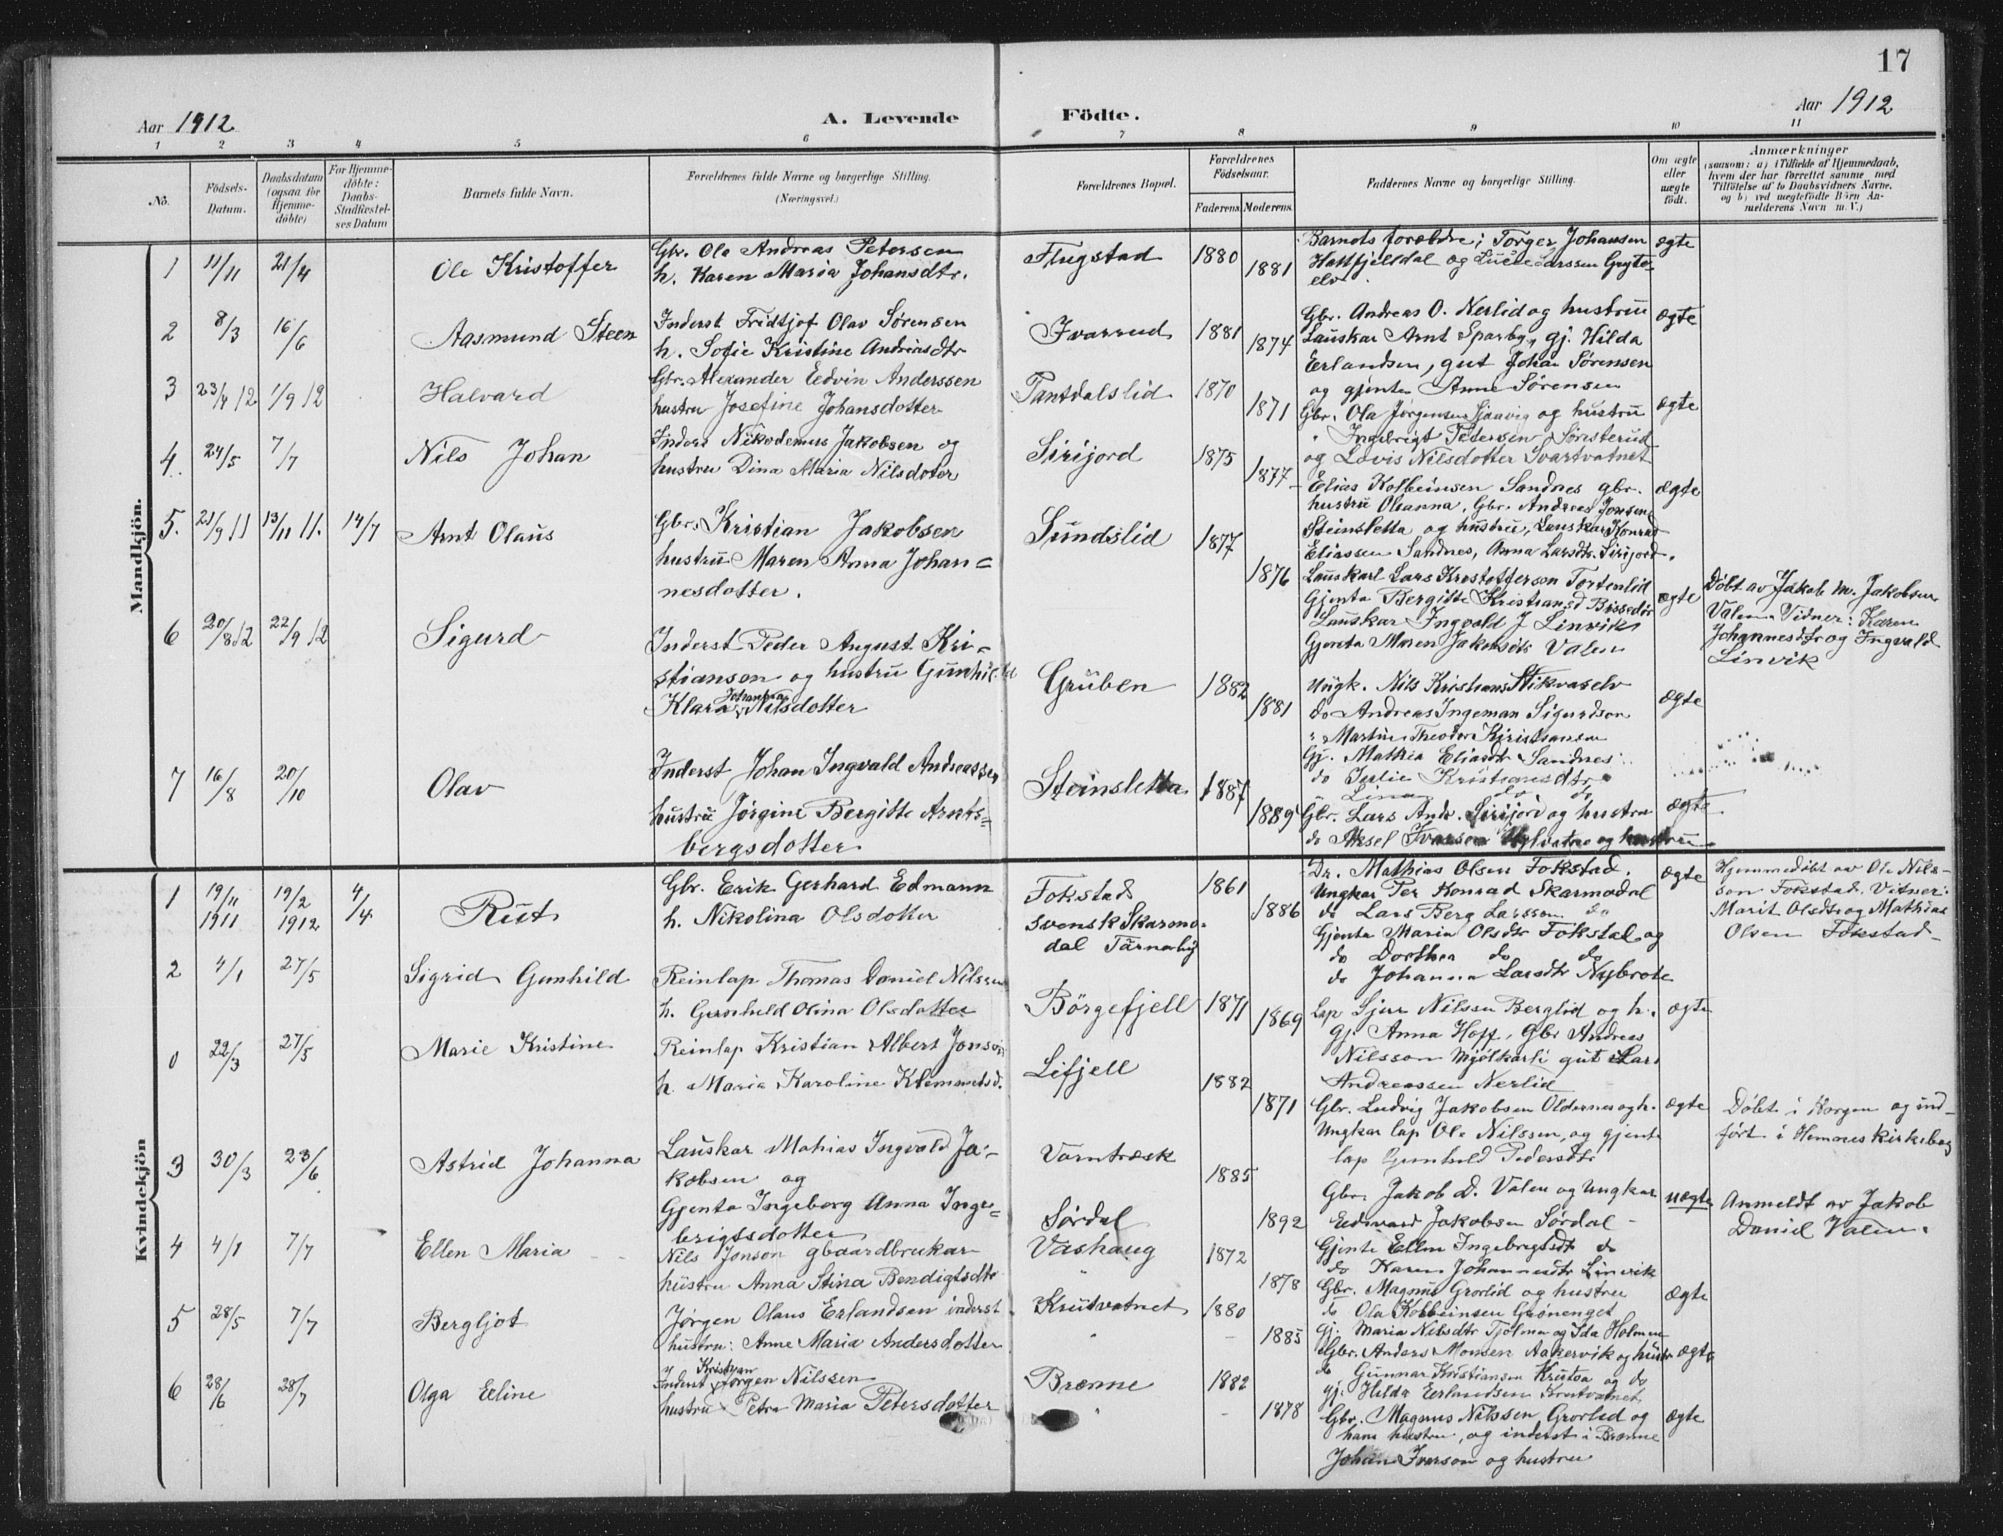 17
Aar 1912
A. Levende
Födte.
Aar 1912
1 2 3 4 5 6 7 8 9 10 11
No.
Födsels-Datum.
Daabsdatum (ogsaa for Hjemme-döbte)
For Hjemme-döbte: Daabs-Stadfæstel-ses Datum
Barnets fulde Navn.
Forældrenes fulde Navne og borgerlige Stilling.
(Næringsvei.)
Forældrenes Bopæl.
Forældrenes Födselsaar.
Faderens. Moderens.
Faddernes Navne og borgerlige Stilling.
Om ægte eller uægte födt.
Anmærkninger
(saasom: a) i Tilfælde af Hjemmedaab,
hvem der har forrettet samme med
Tilföielse af to Daabsvidners Navne,
og b) ved uægtefödte Börn An-
melderens Navn m. V.)
Mandkjön.
1 11/11 21/4 Ole Kristoffer
Gbr. Ola Andreas Petersen
h. Karen Maria Johansdtr.
Flugstad 1880 1881
Barnets forældre; Torger Johansen
Hattfjelldal og Larssen Grytø
elv
ægte
2 8/3 16/6 Aasmund Steen
Inderst Fridtjof Olav Sørensen
h. Sofie Kristine Andreasdtr
Ivarrud 1881 1874
Gbr. Andreas O. Nerlid og hustru
Lauskar Arnt Sparby, gj. Hilda
Erlandsen, gut Johan Sørensen
og gjenta Anna Sørensen
ægte
3 23/4 12 1/9 12 Halvard
Gbr. Alexander Edvin Anderssen
hustru Josefine Johansdotter
Tantdalslid 1870 1871
Gbr. Ola Jørgensen Sjaavig og hustru
" Ingebrigt Petersen
og Lovis Nilsdotter Svartvatnet
ægte
4. 24/5 7/7 Nils Johan
Inders Nikodemus Jakobsen og
hustru Dina Maria Nilsdoter
Sirijord 1875 1877
Elias Kolbeinsen Sandnes gbr.
hustru Oleanna, Gbr. Andreas Jonsen
Steinsletta og hustru, Lauskar Konrad
Eliassen Sandnes, Anna Larsdtr Sirijord.
ægte
5. 21/9 11 13/11 11. 14/7 Arnt Olaus
Gbr. Kristian Jakobsen
hustru Maren Anna Johan=
nesdotter.
Sundslid 1877 1876
Lauskarl Lars Kristofferson Tortenlid
Gjenta Bergitte Kristiansd
Lauskar Ingvald J Linvik
Gjenta Maren Jakobsdtr Valen
ægte
Døbt av Jakob M. Jakobsen
Valen. Vidner: Karen
Johannesdtr og Ingvald
Linvik
6 20/8 12 22/9 12 Sigurd
Inderst Peder August Kri-
stianson og hustru Gunhild
Klara Johanna Nilsdotter
Gruben 1882 1881
Ungk. Nils Kristians Stikvaselv
do Andreas Ingeman Sigurdson
" Martin Theodor Kiristiansen
Gj. Mathea Eliasdtr Sandnes
do Julie Kristiansdtr
Lina do do
ægte
7 16/8 20/10 Olav
Inderst Johan Ingvald Andreassen
hustru Jørgine Bergitte Arnts=
bergsdotter
Steinsletta 1887 1889
Gbr. Lars Andr. Sirijord og hustru
do Aksel Ivarson og hustru
ægte
Kvindekjön
1 19/11 1911 19/2 1912 4/4 Rut
Gbr. Erik Gerhard Edmann
h. Nikolina Olsdotter
Fokstad
svensk Skarmo-
dal Tärnaby
1861 1886
Dr. Mathias Olsen Fokstad,
Ungkar Per Konrad Skarmodal
do Lars Berg Larsson do
Gjenta Maria Olsdtr Fokstal og
do Dorthea do do
do Johanna Larsdtr Nybrote
ægte
Hjemmedøbt av Ole Nils-
son Fokstad. Vitner:
Marit Olsdtr og Mathias
Olsen Fokstad
2 4/1 27/5 Sigrid Gunhild
Reinlap Thomas Daniel Nilssen
h. Gunhild Olina Olsdotter
Börgefjell 1871 1869
Lap Sjur Nilssen Berglid og h.
Gj. Anna Hoff, Gbr Andreas
Nilsson Mjölkarli gut Lars
Andreassen Nerlid
ægte
0 22/3 27/5 Marie Kristine
Reinlap Kristian Albert Jonson
h. Maria Karoline Klemmetsd.
Lifjell 1882 1871
Gbr. Ludvig Jakobsen Oldernes og h.
Ungkar lap Ole Nilssen, og gjente
lap Gunhild Pedersdtr
ægte
Døbt i Korgen og ind-
ført i Hemnes kirkebog
3 30/3 23/6 Astrid Johanna
Lauskar Mathias Ingvald Ja-
kobsen og
Gjenta Ingeborg Anna Inge=
brigtsdotter
Varntræsk
Sørdal
1885 1892
Gbr. Jakob D. Valen og Ungkar
Edvard Jakobsen Sørdal
Gjente Ellen Ingebregtsdt do
do Karen Johannesdtr Linvik
uægte
Anmeldt av Jakob
Daniel Valen.
4 4/1 7/7 Ellen Maria
Nils Jonson gbaardbrukar
hustru Anna Stina Bendigtsdtr
Vashaug 1872 1878
Gbr. Magnus Grorlid og hustru
do Ola Kolbeinsen Grønenget
Gj. Maria Nilsdtr Tjolmen og Ida Holmen
ægte
5 28/5 7/7 Bergljot
Jørgen Olaus Erlandsen inderst
hustru: Anne Maria Andersdotter
Krutvatnet 1880 1885
Gbr. Anders Monsen Aakervik og hustr
do Gunnar Kristiansen Krutaa og do
gj. Hilda Erlandsen Krutvatnet
ægte
6 28/6 28/7 Olga Eline
Inderst Kristian Jörgen Nilssen
hustru Petra Maria Petersdotter
Brenne 1882 1878
Gbr. Magnus Nilssen Grorlid og
hans hustru, og inderst i Brenne
Johan Ivarson og hustru
ægte